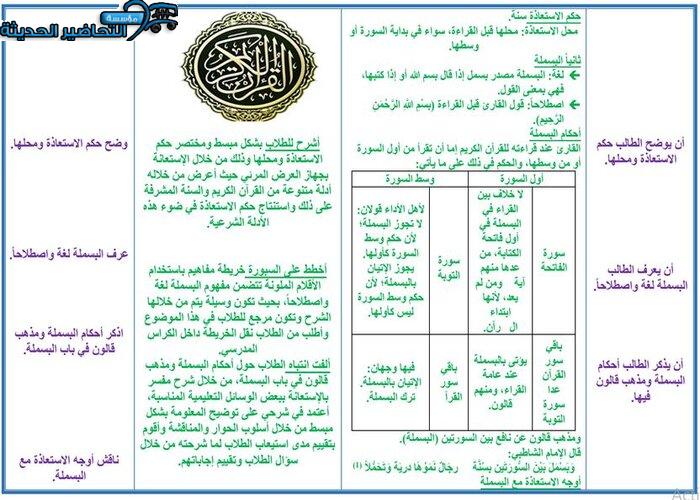 مؤسسة
التحاضير الحديثة
أن يوضح الطالب حكم
الاستعاذة ومحلها.
أن يعرف الطالب
البسملة لغة واصطلاحاً.
أن يذكر الطالب أحكام
البسملة ومذهب قالون
فيها.
حكم الاستعاذة سنة.
محل الاستعاذة: محلها قبل القراءة، سواء في بداية السورة أو
وسطها.
ثانياً البسملة
لغة: البسملة مصدر بسمل إذا قال بسم الله أو إذا كتبها،
فهي بمعنى القول.
اصطلاحاً: قول القارئ قبل القراءة (بِسْمِ اللَّهِ الرَّحْمَٰنِ
الرَّحِيمِ).
أحكام البسملة
القارئ عند قراءته للقرآن الكريم إما أن تقرأ من أول السورة
أو من وسطها، والحكم في ذلك على ما يأتي:
أول السورة
وسط السورة
سورة
الفاتحة
لا خلاف بين
القراء في
البسملة في
أول فاتحة
الكتابة، من
عدها منهم
آية ومن لم
يعد، لأنها
ابتداء
ال رآن.
سورة
التوبة
لأهل الأداء قولان:
لا تجوز البسملة؛
لأن حكم وسط
السورة كأولها.
يجوز الإتيان
بالبسملة؛ لأن
حكم وسط السورة
ليس كأولها.
باقي
سور
القرآن
عدا
سورة
التوبة
يؤتى بالبسملة
عند عامة
القراء، ومنهم
قالون.
باقي
سور
القرآ
فيها وجهان:
الإتيان بالبسملة.
ترك البسملة.
ومذهب قالون عن نافع بين السورتين (البسملة).
قال الإمام الشاطبي:
وَبَسْمَلَ بَيْنَ السُّورَتَيْنِ بِسُنَّةٍ رِجَالٌ نَمَوْهَا دِرْيَةً وَتَحَمُّلاً (1)
أوجه الاستعاذة مع البسملة
القرآن الكريم
أشرح للطلاب بشكل مبسط ومختصر حكم
الاستعاذة ومحلها وذلك من خلال الإستعانة
بجهاز العرض المرئي حيث أعرض من خلاله
أدلة متنوعة من القرآن الكريم والسنة المشرفة
على ذلك واستنتاج حكم الاستعاذة في ضوء هذه
الأدلة الشرعية.
أخطط على السبورة خريطة مفاهيم باستخدام
الأقلام الملونة تتضمن مفهوم البسملة لغة
واصطلاحاً، بحيث تكون وسيلة يتم من خلالها
الشرح وتكون مرجع للطلاب في هذا الموضوع
وأطلب من الطلاب نقل الخريطة داخل الكراس
المدرسي.
ألفت انتباه الطلاب حول أحكام البسملة ومذهب
قالون في باب البسملة، من خلال شرح مفسر
بالإستعانة ببعض الوسائل التعليمية المناسبة،
أعتمد في شرحي على توضيح المعلومة بشكل
مبسط من خلال أسلوب الحوار والمناقشة وأقوم
بتقييم مدى استيعاب الطلاب لما شرحته من خلال
سؤال الطلاب وتقييم إجاباتهم.
وضح حكم الاستعاذة ومحلها.
عرف البسملة لغة واصطلاحاً.
اذكر أحكام البسملة ومذهب
قالون في باب البسملة.
ناقش أوجه الاستعاذة مع
البسملة.